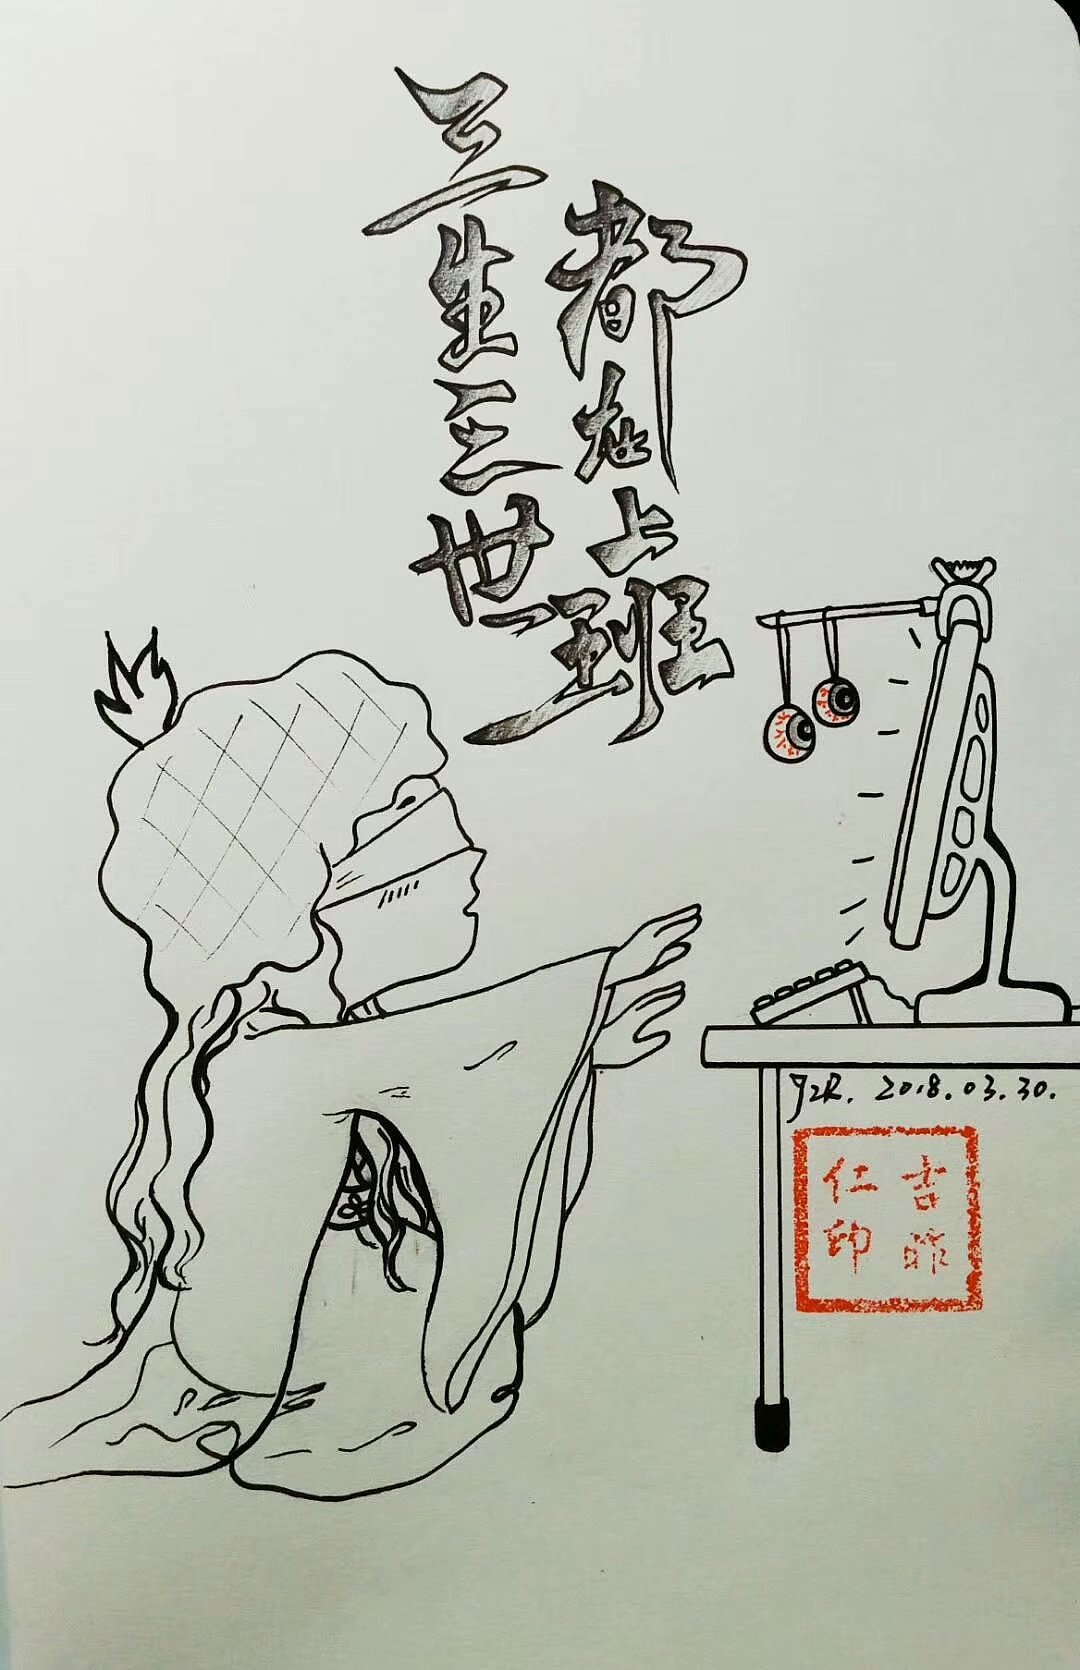 三生三世
都在上班
2018.03.30.
吉昨
仁印